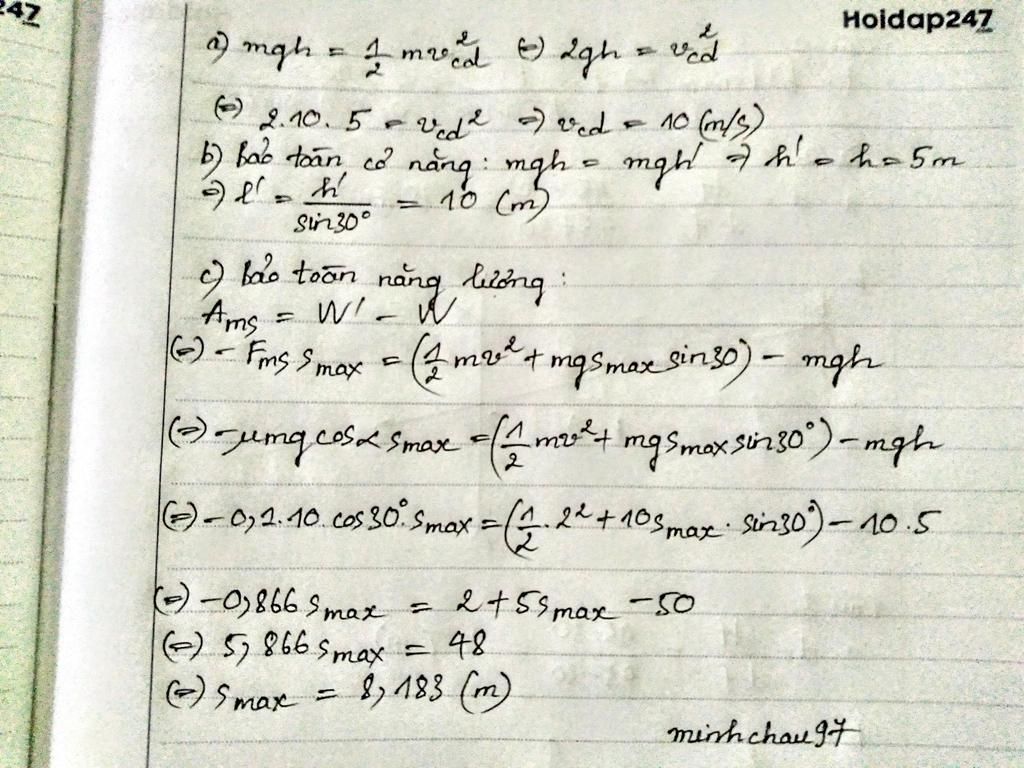 247
Hoidap247
a) mgh = 1/2 mv_cđ² (=) 2gh = v_cđ²
(=) 2.10.5 = v_cđ² => v_cđ = 10 (m/s)
b) Bảo toàn cơ năng: mgh = mgh' => h' = h = 5m
=> l' = h'/sin30° = 10 (m)
c) Bảo toàn năng lượng:
A_ms = W' - W
(=) -F_ms s_max = (1/2 mv² + mgs_max sin30) - mgh
(=) -μmg cosα s_max = (1/2 mv² + mgs_max sin30°) - mgh
(=) -0,1.10.cos30°.s_max = (1/2.2² + 10s_max.sin30°) - 10.5
(=) -0,866s_max = 2 + 5s_max - 50
(=) 5,866s_max = 48
(=) s_max = 8,183 (m)
minhchau97